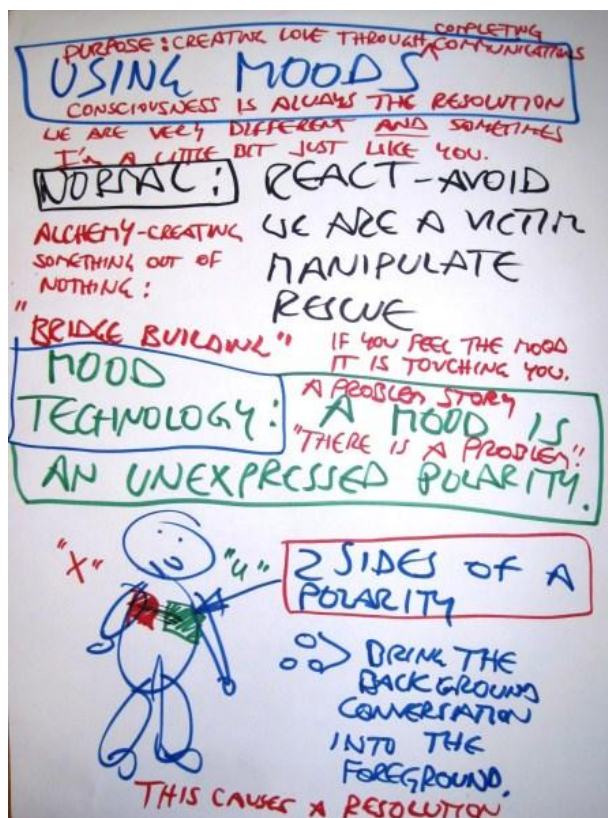 PURPOSE: CREATING LOVE THROUGH COMPLETING COMMUNICATIONS
USING MOODS
CONSCIOUSNESS IS ALWAYS THE RESOLUTION
WE ARE VERY DIFFERENT AND SOMETIMES
I'M A LITTLE BIT JUST LIKE YOU.
NORMAL: REACT-AVOID
WE ARE A VICTIM
MANIPULATE
RESCUE
ALCHEMY-CREATING
SOMETHING OUT OF
NOTHING:
"BRIDGE BUILDING"
IF YOU FEEL THE MOOD
IT IS TOUCHING YOU.
A PROBLEM STORY
"THERE IS A PROBLEM!"
MOOD
TECHNOLOGY: A MOOD IS
AN UNEXPRESSED POLARITY.
"X" "Y"
2 SIDES OF A
POLARITY
BRING THE
BACKGROUND
CONVERSATION
INTO THE
FOREGROUND.
THIS CAUSES A RESOLUTION